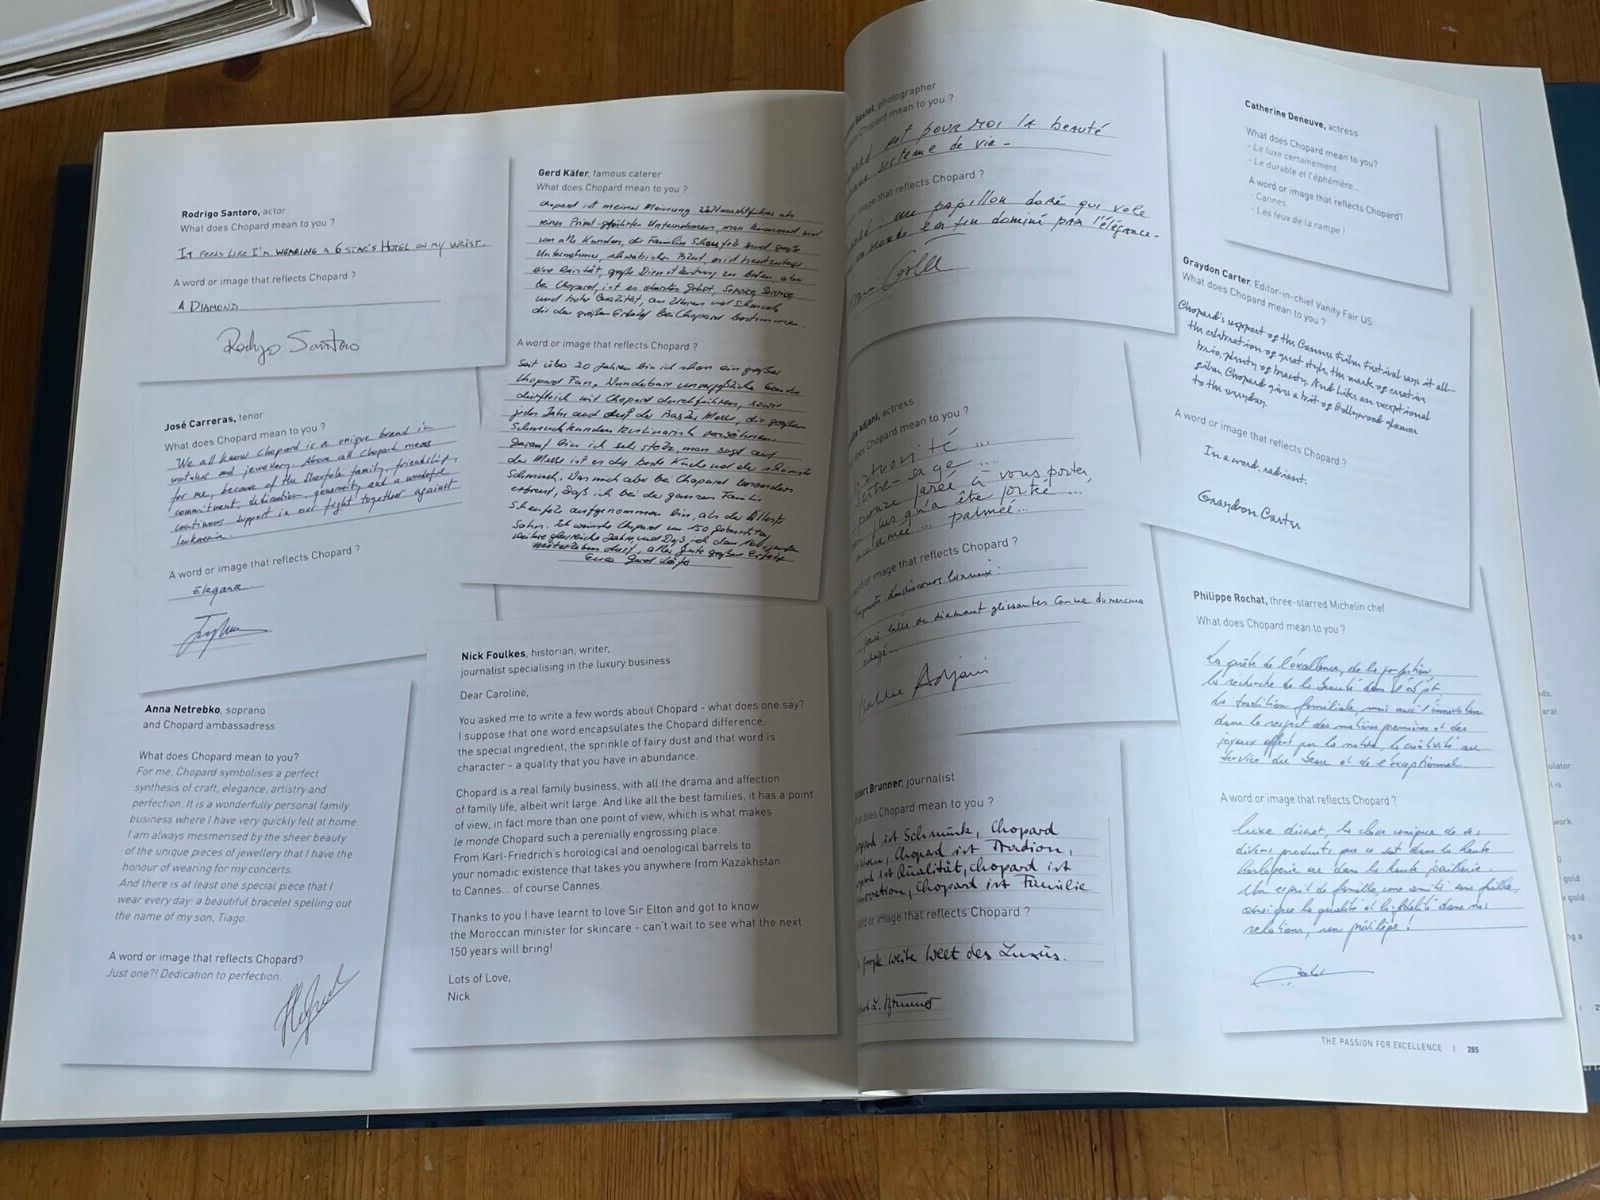 Rodrigo Santoro, actor
What does Chopard mean to you ?
IT FEELS LIKE I'M WEARING A 6 STAR'S HOTEL ON MY WRIST
A word or image that reflects Chopard ?
A DIAMOND
Rodrigo Santoro
José Carreras, tenor
What does Chopard mean to you ?
We all know Chopard is a unique brand in
watches and jewellery. Above all Chopard means
for me, because of the Scheufele family, friendship,
commitment, dedication, generosity and a wonderful
continuous support in our fight together against
leukaemia.
A word or image that reflects Chopard ?
Elegance
Anna Netrebko, soprano
and Chopard ambassadress
What does Chopard mean to you?
For me, Chopard symbolises a perfect
synthesis of craft, elegance, artistry and
perfection. It is a wonderfully personal family
business where I have very quickly felt at home.
I am always mesmerised by the sheer beauty
of the unique pieces of jewellery that I have the
honour of wearing for my concerts.
And there is at least one special piece that I
wear every day: a beautiful bracelet spelling out
the name of my son, Tiago.
A word or image that reflects Chopard?
Just one?! Dedication to perfection.
Gerd Käfer, famous caterer
What does Chopard mean to you ?
Chopard ist meiner Meinung
Unternehmen, man
um alle Kunden, die Familie Scheufele sind große
Unternehmer,
eine Rarität, große Dienstleistung zu bieten, aber
bei Chopard ist es oberstes Gebot, Service, Service
und hohe Qualität, an Uhren und Schmuck
die den großen Erfolg bei Chopard bestimmen.
A word or image that reflects Chopard ?
Seit über 20 Jahren bin ich schon ein großer
Chopard Fan. Wunderbare unvergeßliche
durfte ich mit Chopard durchführen, sowie
jedes Jahr auch auf der Basler Messe, die großen
Schmuckkunden kulinarisch verwöhnen.
Darauf bin ich sehr stolz, man sagt auf
der Messe ist es die beste Küche und der schönste
Schmuck. Was mich aber bei Chopard besonders
erfreut, daß ich bei der ganzen Familie
Scheufele aufgenommen bin, als der älteste
Sohn. Ich wünsche Chopard zum 150 Geburtstag
weitere glorreiche Jahre, und daß ich den
miterleben darf, alles Gute großen Erfolg
Euer Gerd Käfer
Nick Foulkes, historian, writer,
journalist specialising in the luxury business
Dear Caroline,
You asked me to write a few words about Chopard - what does one say?
I suppose that one word encapsulates the Chopard difference,
the special ingredient, the sprinkle of fairy dust and that word is
character - a quality that you have in abundance.
Chopard is a real family business, with all the drama and affection
of family life, albeit writ large. And like all the best families, it has a point
of view, in fact more than one point of view, which is what makes
le monde Chopard such a perenially engrossing place.
From Karl-Friedrich's horological and oenological barrels to
your nomadic existence that takes you anywhere from Kazakhstan
to Cannes... of course Cannes.
Thanks to you I have learnt to love Sir Elton and got to know
the Moroccan minister for skincare - can't wait to see what the next
150 years will bring!
Lots of Love,
Nick
photographer
Chopard mean to you ?
est pour moi la beauté
systeme de vie -
image that reflects Chopard ?
un papillon doré qui vole
dominé par l'élégance -
Adjani, actress
Chopard mean to you ?
... sage ...
à vous porter,
plus qu'à être porté ...
aimée ... palmée ...
word or image that reflects Chopard ?
de diamant glissantes comme du mercure
Isabelle Adjani
Brunner, journalist
Chopard mean to you ?
ist Schmuck, Chopard
Chopard ist Tradition,
ist Qualität, Chopard ist
Innovation, Chopard ist Familie
word or image that reflects Chopard ?
große weite Welt des Luxus.
Brunner
Catherine Deneuve, actress
What does Chopard mean to you?
- Le luxe certainement.
- Le durable et l'éphémère...
A word or image that reflects Chopard?
- Cannes
- Les feux de la rampe !
Graydon Carter, Editor-in-chief Vanity Fair US
What does Chopard mean to you ?
Chopard's support of the Cannes Film Festival says it all-
the celebration of great style, the mark of creative
brio, plenty of beauty. And like an exceptional
film, Chopard gives a bit of Hollywood glamour
to the everyday.
A word or image that reflects Chopard ?
In a word, radiant.
Graydon Carter
Philippe Rochat, three-starred Michelin chef
What does Chopard mean to you ?
La quête de l'excellence, de la perfection
la recherche de la beauté dans l'objet
la tradition familiale, mais aussi l'innovation
dans le respect des matières premières et des
joyaux offert par la nature, la créativité au
service du beau et de l'exceptionnel.
A word or image that reflects Chopard ?
Luxe discret, la classe unique de ses
divers produits que ce soit dans la haute
horlogerie ou dans la haute joaillerie.
Un esprit de famille, une amitié sans faille,
ainsi que la qualité et la fidélité dans nos
relations, un privilège !
THE PASSION FOR EXCELLENCE | 285